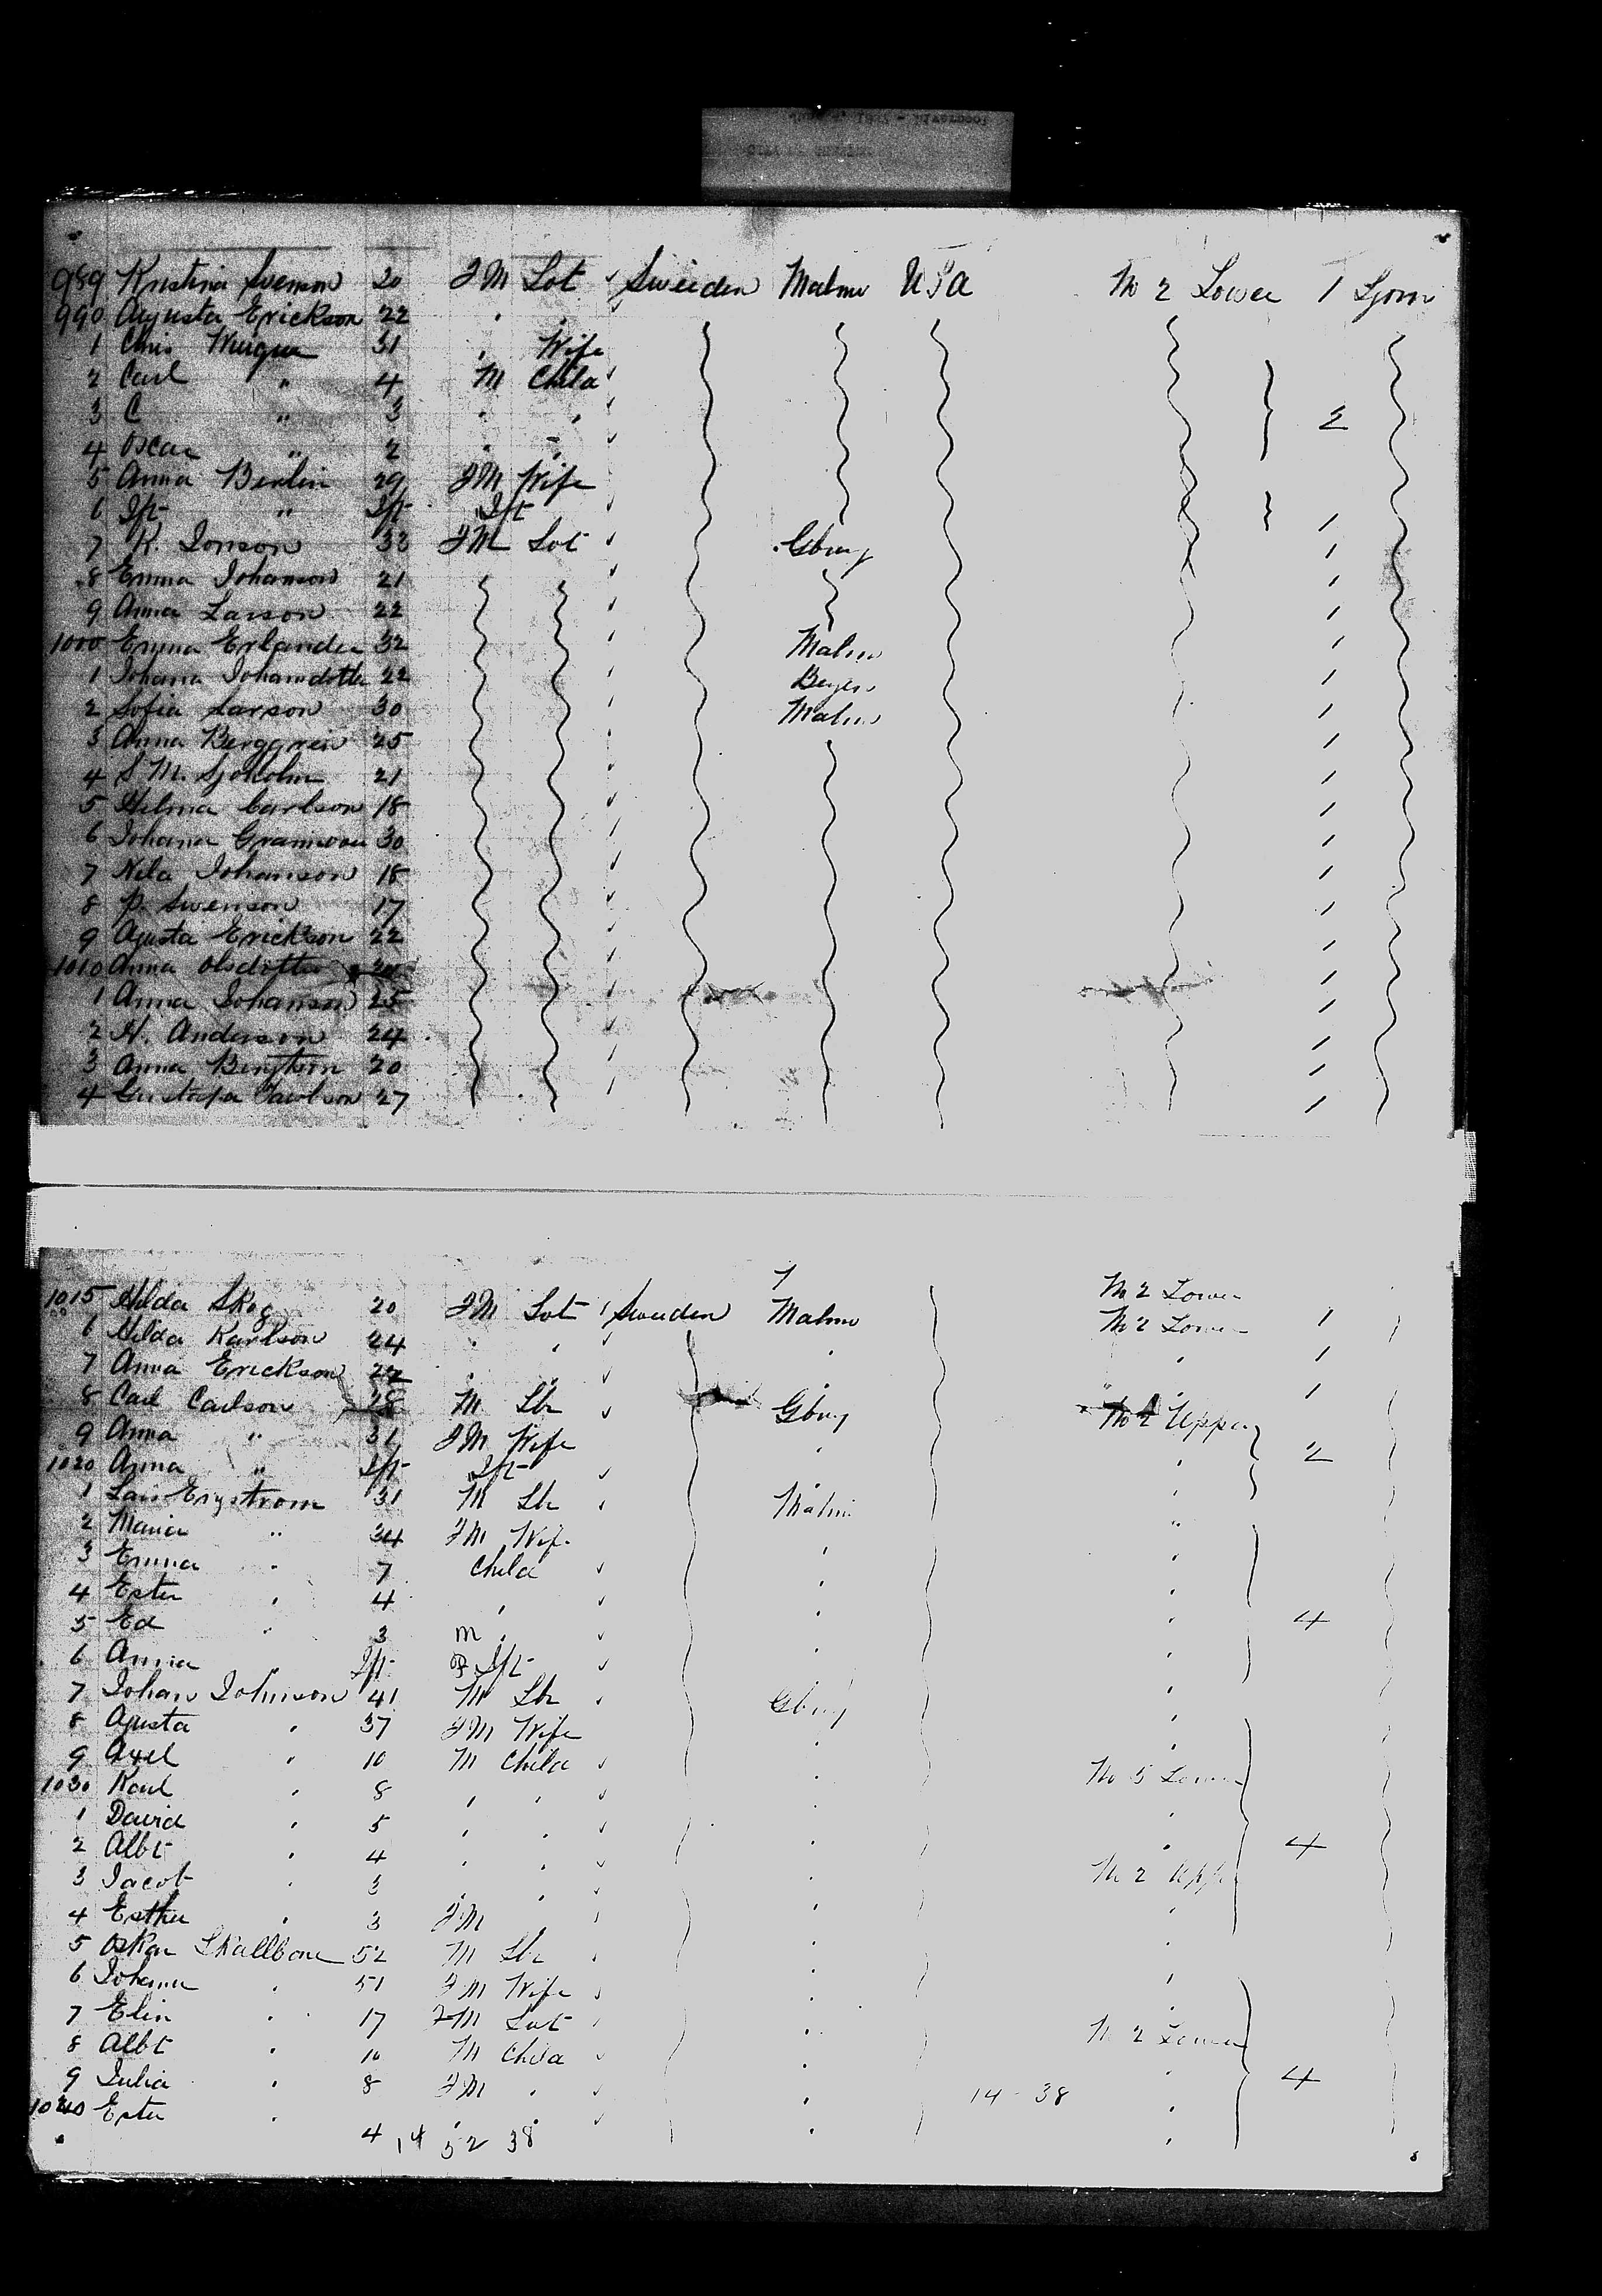 989 Kristina Svenson 20 FM Sot Sweeden Malmo USA No 2 Lower 1 Sjorn
990 Agusta Erickson 22 " "
1 Chris 31 " Wife
2 Carl " 4 M Child
3 C " 3 " " 2
4 Oscar " 2 " "
5 Anna Berlin 29 FM Wife
6 Ift " Ift Ift 1
7 K. Jonson 33 FM Sot Gburg 1
8 Emma Johanson 21 1
9 Anna Larson 22 1
1000 Emma Erlander 32 Malmo 1
1 Johana Johansdotter 22 Bergen 1
2 Sofia Larson 30 Malmo 1
3 Anna Berggren 25 1
4 S M. Sjoholm 21 1
5 Hilma Carlson 18 1
6 Johana 30 1
7 Nela Johanson 18 1
8 P. Swenson 17 1
9 Agusta Erickson 22 1
1010 Anna Olsdotter 1
1 Anna Johanson 25 1
2 H. Anderson 24 1
3 Anna 20 1
4 27 1
1015 Hilda Skog 20 FM Sot Sweeden Malmo No 2 Lower
6 Hilda Karlson 24 " " " No 2 Lower 1
7 Anna Erickson 22 " " " " 1
8 Carl Carlson 28 M Lbr Gburg No 2 Upper 1
9 Anna " 31 FM Wife " " 2
1020 Anna " Ift Ift " "
1 Lars Engstrom 31 M Lbr Malmo "
2 Maria " 34 FM Wife " "
3 Emma " 7 Child " "
4 Ester " 4 " " "
5 Ed " 3 M " " " 4
6 Anna " Ift F Ift " "
7 Johan Johnson 41 M Lbr Gburg "
8 Agusta " 37 FM Wife " "
9 Axel " 10 M Child " No 5 Lower
1030 Karl " 8 " " " "
1 David " 5 " " " " 4
2 Albt " 4 " " " No 2 Upper
3 Jacob " 3 " " " "
4 Esther " 3 FM " " "
5 Oskar Skallbom 52 M Lbr " "
6 Johanna " 51 FM Wife " "
7 Elin " 17 FM Sot " No 2 Lower
8 Albt " 10 M Child " "
9 Julia " 8 FM " " 14 - 38 " 4
1040 Ester " 4 " " " "
14 52 38